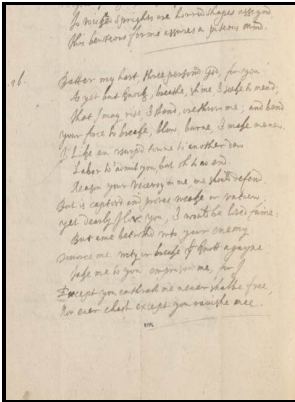 To wicked sprights are horrid shapes assignd
This beauteous forme assures a piteous mind.
16.
Batter my hart, three persond God, for you
As yet but knock, breathe, shine & seeke to mend;
That I may rise & stand, orethrow me; and bend
your force to breake, blow, burne, & make me new.
I Like an usurpt towne to another due
Labor to admit you, but oh to no end.
Reason your viceroy in me, me should defend
But is captivd and proves weake or untrew.
yet dearly I love you, & would be lovd faine.
But ame betrothd unto your enemy
Divorce me, untye or breake that knott agayne
Take me to you, emprison me, for I
Except you enthrall me never shalbe free,
Nor ever chast except you ravishe mee.